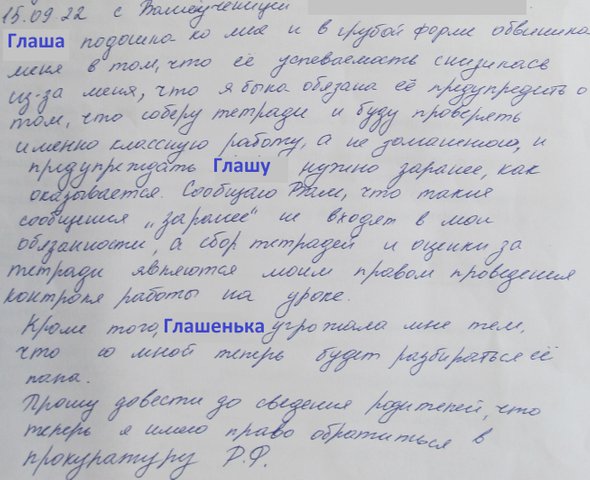 15.09.22 с Вашей ученицы
Глаша подошла ко мне и в грубой форме обвинила
меня в том, что её успеваемость снизилась
из-за меня, что я была обязана её предупредить о
том, что соберу тетради и буду проверять
именно классную работу, а не домашнюю, и
предупреждать Глашу нужно заранее, как
оказывается. Сообщаю Вам, что такие
сообщения „заранее“ не входят в мои
обязанности, а сбор тетрадей и оценки за
тетради являются моим правом проведения
контроля работы на уроке.
Кроме того, Глашенька угрожала мне тем,
что со мной теперь будет разбираться её
папа.
Прошу довести до сведения родителей, что
теперь я имею право обратиться в
прокуратуру Р.Ф.